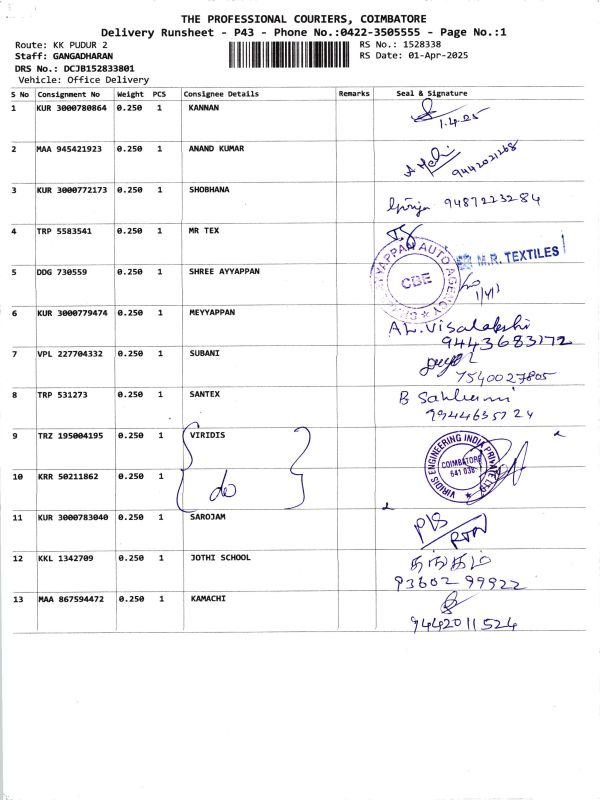 THE PROFESSIONAL COURIERS, COIMBATORE
Delivery Runsheet - P43 - Phone No.:0422-3505555 - Page No.:1
Route: KK PUDUR 2 RS No.: 1528338
Staff: GANGADHARAN RS Date: 01-Apr-2025
DRS No.: DCJB152833801
Vehicle: Office Delivery
S No Consignment No Weight PCS Consignee Details Remarks Seal & Signature
1 KUR 3000780864 0.250 1 KANNAN
1.4.25
2 MAA 945421923 0.250 1 ANAND KUMAR
9442021268
3 KUR 3000772173 0.250 1 SHOBHANA
9487223284
4 TRP 5583541 0.250 1 MR TEX
M.R. TEXTILES
5 DDG 730559 0.250 1 SHREE AYYAPPAN
AYYAPPAN AUTO AGENCY
CBE
6 KUR 3000779474 0.250 1 MEYYAPPAN
AL. Visalakshi
9443683172
7 VPL 227704332 0.250 1 SUBANI
7540027805
8 TRP 531273 0.250 1 SANTEX
B
9944635724
9 TRZ 195004195 0.250 1 VIRIDIS
VIRIDIS ENGINEERING INDIA PRIVATE LTD
COIMBATORE
641 038
10 KRR 50211862 0.250 1 do
11 KUR 3000783040 0.250 1 SAROJAM
12 KKL 1342709 0.250 1 JOTHI SCHOOL
தங்கம்
93602 99922
13 MAA 867594472 0.250 1 KAMACHI
9442011524